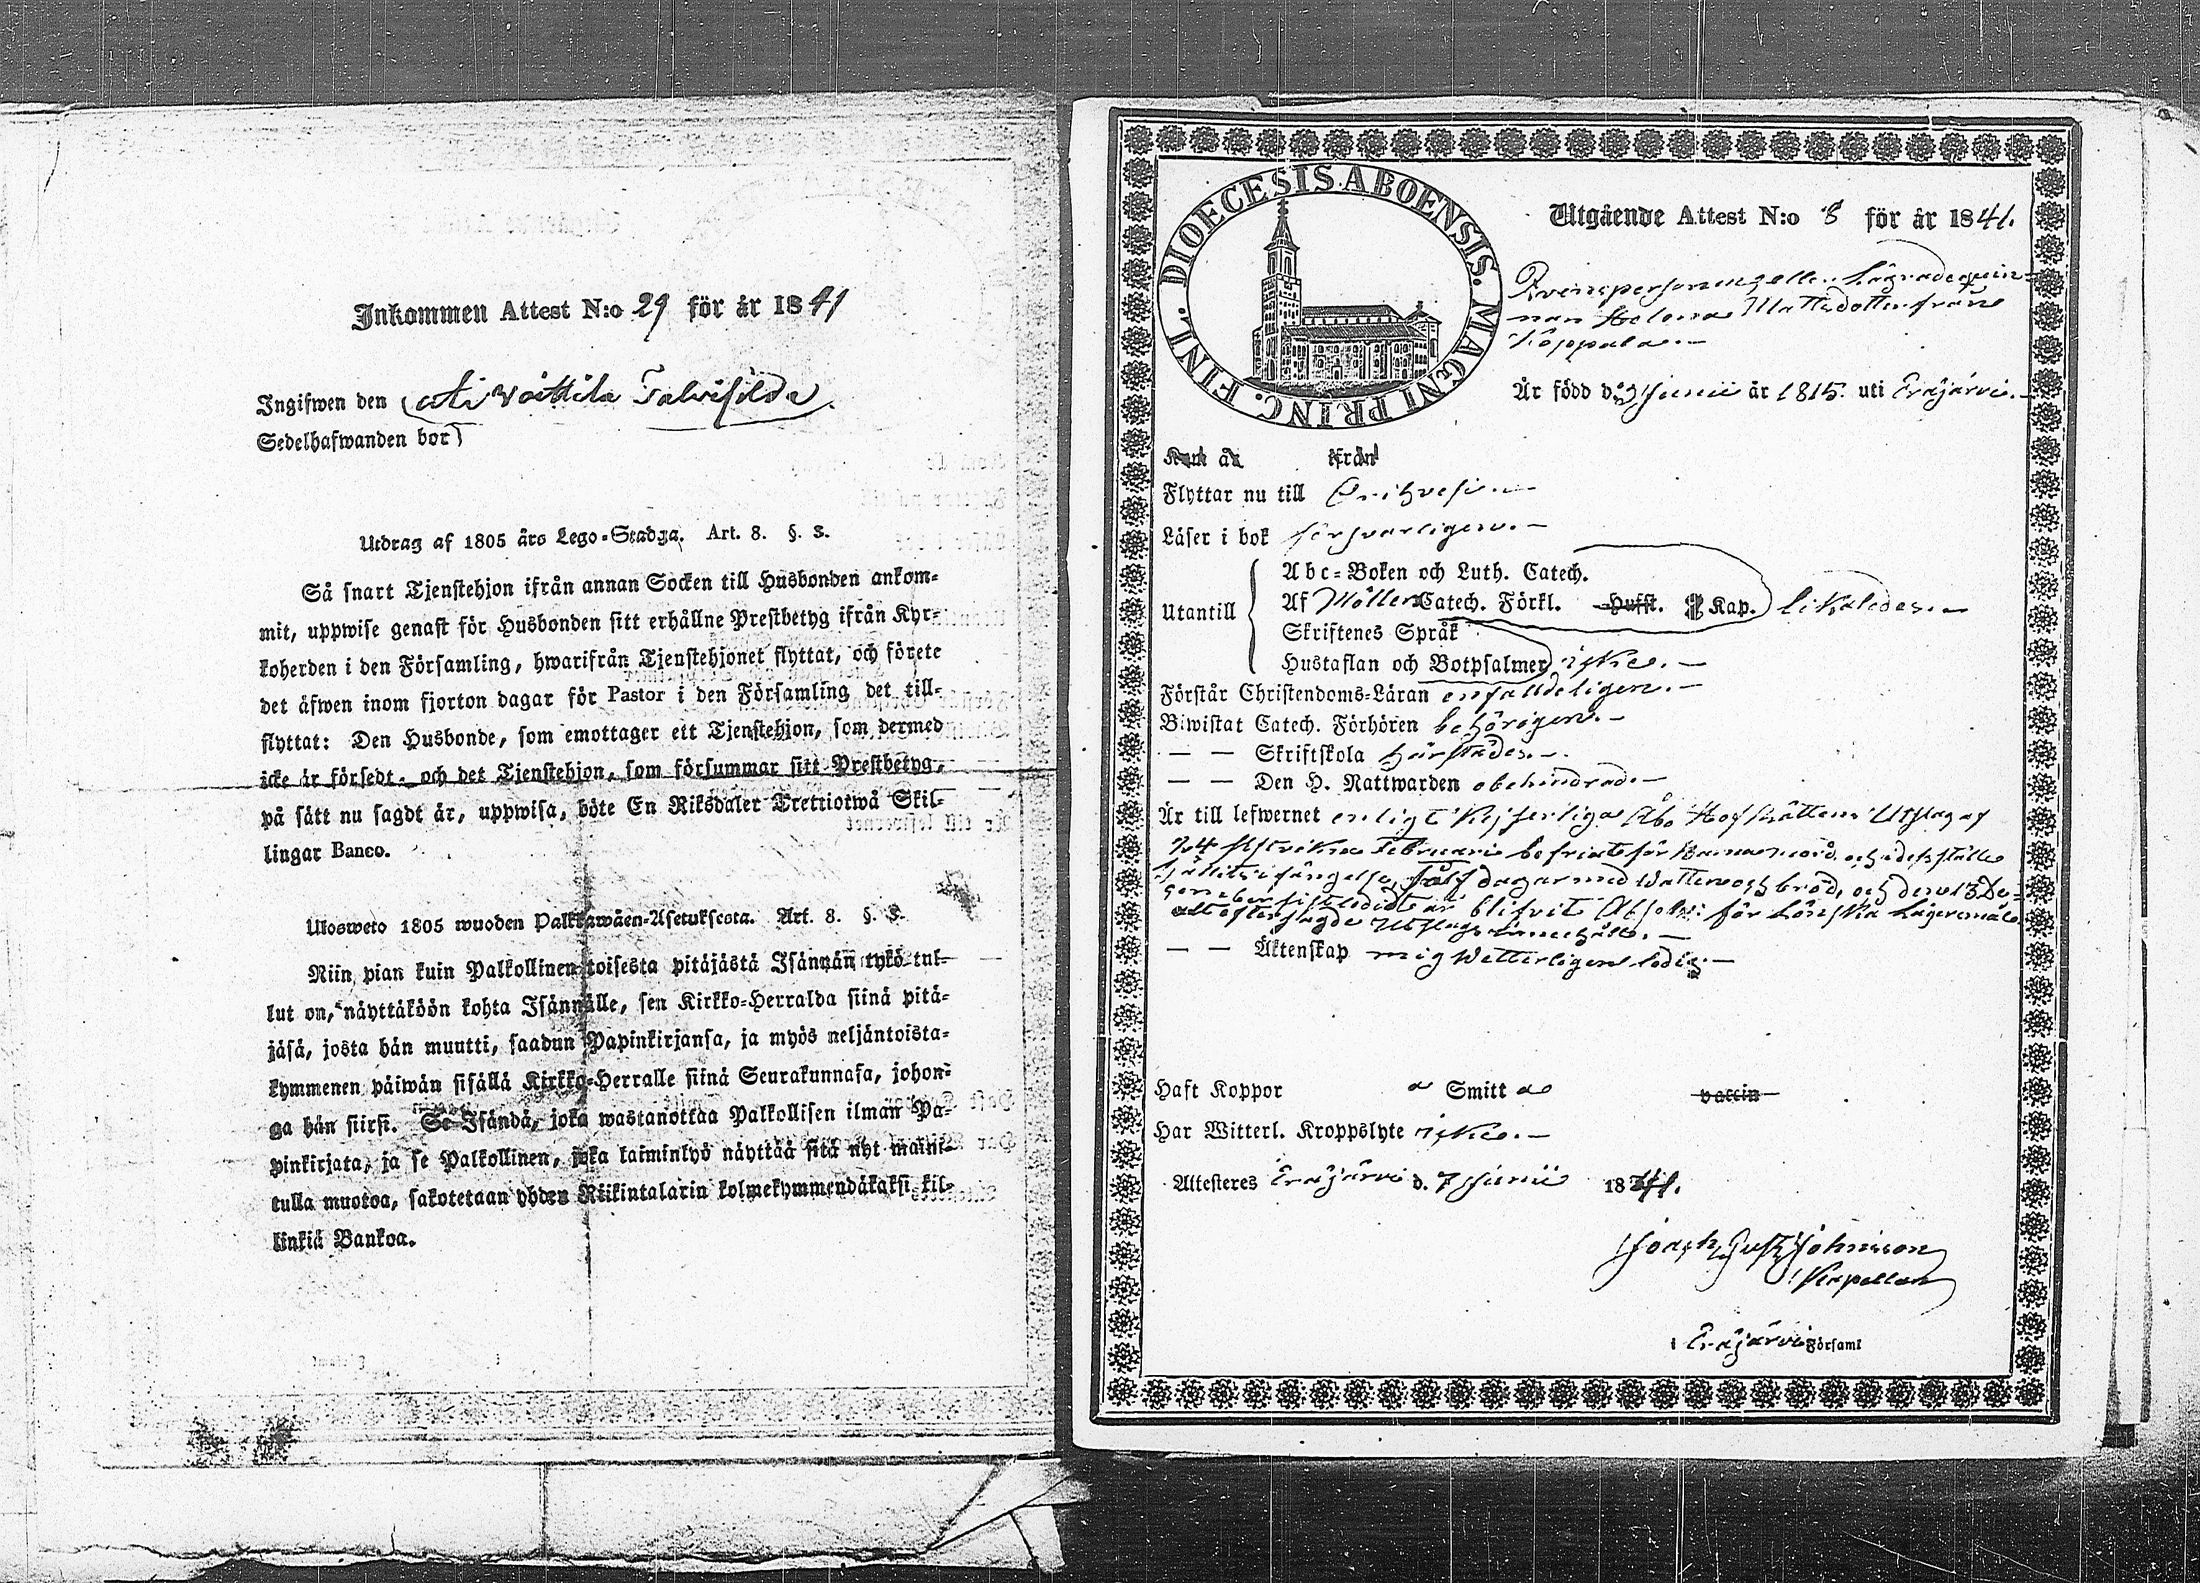 Inkommen Attest N:o 29 för år 1841
Ingifwen den
uti Voittila Talvisilda
Sedelhafwanden bor
Utdrag af 1805 års Lego-Stadga. Art. 8. §. 3.
Så snart Tjenstehjon ifrån annan Socken till Husbonden ankom-
mit, uppwise genast för Husbonden sitt erhållne Prestbetyg ifrån Kyr-
koherden i den Församling, hwarifrån Tjenstehjonet flyttat, och förete
det äfwen inom fjorton dagar för Pastor i den Församling det till-
flyttat: Den Husbonde, som emottager ett Tjenstehjon, som dermed
icke är försedt, och det Tjenstehjon, som försummar sitt Prestbetyg,
på sätt nu sagdt är, uppwisa, böte En Riksdaler Trettiotwå Skil-
lingar Banco.
Ulosweto 1805 wuoden Palkkawäen-Asetuksesta. Art. 8. §. 3.
Niin pian kuin Palkollinen toisesta pitäjästä Isännän tykö tul-
lut on, näyttäköön kohta Isännälle, sen Kirkko-Herralda siinä pitä-
jäsä, josta hän muutti, saadun Papinkirjansa, ja myös neljäntoista-
kymmenen päiwän sisällä Kirkko-Herralle siinä Seurakunnasa, johon-
ga hän siirsi. Se Isändä, joka wastanottaa Palkollisen ilman Pa-
pinkirjata, ja se Palkollinen, joka laiminlyö näyttää sitä nyt maini-
tulla muotoa, sakotetaan yhden Riikintalarin kolmekymmendäkaksi kil-
linkiä Bankoa.
DIOECESIS ABOENSIS. MAGNI PRINC. FINL.
Utgående Attest N:o 8 för år 1841.
Qvinspersonen eller Lägradeqvin-
nan Helena Mattsdotter från
Koppala.-
Är född d. 3 Junii år 1815. uti Eräjärvi.-
Kom år ifrån
Flyttar nu till Orihvesi.-
Läser i bok försvarligen.-
Abc-Boken och Luth. Catech.
Utantill Af Möllers Catech. Förkl. Hufst. Kap. likaledes.-
Skriftenes Språk
Hustaflan och Botpsalmer icke.-
Förstår Christendoms-Läran enfalldeligen.-
Biwistat Catech. Förhören behörigen.-
— — Skriftskola härstädes.-
— — Den H. Nattwarden obehindrad.-
Är till lefwernet enligt Kejserliga Åbo Hof Rättens Utslag af
24 sistvikne Februarii befriat för Barnamord, och i dess ställe
fängelse, dagar med Watten och bröd, och den 13 De-
cember sistledidt år blifvit Absolv: för Lönska Lägersmåle
allt efter sagde Utslags innehåll.-
— — Äktenskap mig Wetterligen ledig.-
Haft Koppor a Smitt ae vaccin
Har Witterl. Kroppslyte icke.-
Attesteres Eräjärvi d. 7 Junii 1841.
Joach. Gust. Johnsson
Kapellan
i Eräjärvi Församl